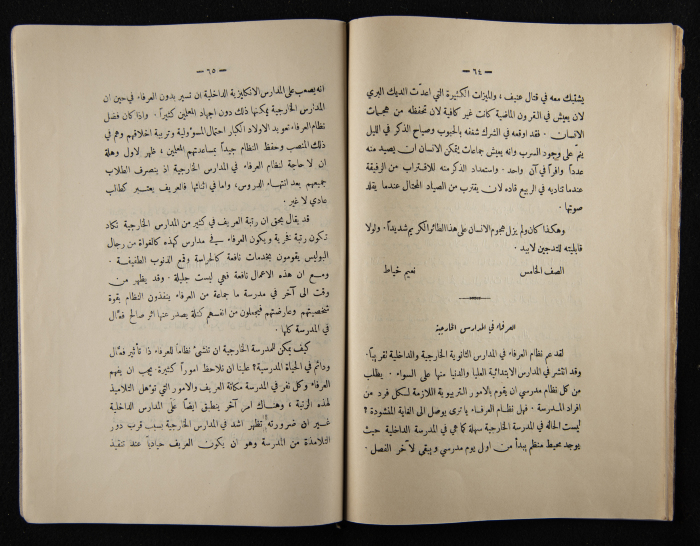 — ٦٤ —
يشتبك معه في قتال عنيف ، والميزات الكثيرة التي اعدّت الديك البري
لان يعيش في القرون الماضية كانت غير كافية لان تحفظه من هجمات
الانسان . فقد اوقعه في الشرك شغفه بالحبوب وصياح الذكر في الليل
ينمّ على وجود السرب وانه يعيش جماعات يمكن الانسان ان يصيد منه
عدداً وافراً في آن واحد . واستعداد الذكر منه للاقتراب من الرفيقة
عندما تناديه في الربيع قاده لان يقترب من الصياد المحتال عندما يقلد
صوتها .
وهكذا كان ولم يزل هجوم الانسان على هذا الطائر الكريم شديداً . ولولا
قابليته للتدجين لابيد .
الصف الخامس نعيم خياط
العرفاء في المدارس الخارجية
لقد عم نظام العرفاء في المدارس الثانوية الخارجية والداخلية تقريباً .
وقد انتشر في المدارس الابتدائية العليا والدنيا منها على السواء . يطلب
من كل نظام مدرسي ان يقوم بالامور التربيوية اللازمة لكل فرد من
افراد المدرسة . فهل نظام العرفاء يا ترى يوصل الى الغاية المنشودة ؟
ليست الحالة في المدرسة الخارجية سهلة كما هي في المدرسة الداخلية حيث
يوجد محيط منظم يبدأ من اول يوم مدرسي ويبقى لآخر الفصل .
— ٦٥ —
انه يصعب على المدارس الانكليزية الداخلية ان تسير بدون العرفاء في حين ان
المدارس الخارجية يمكنها ذلك دون اجهاد المعلمين كثيراً . واذا كان فضل
نظام العرفاء تعويد الاولاد الكبار احتمال المسؤولية وتربية اخلاقهم وهم في
ذلك المنصب وحفظ النظام جيداً بمساعدتهم المعلمين ، ظهر لاول وهلة
ان لا حاجة لنظام العرفاء في المدارس الخارجية اذ ينصرف الطلاب
جميعهم بعد انتهاء الدروس ، واما في اثنائها فالعريف يعتبر كطالب
عادي لا غير .
قد يقال بحق ان رتبة العريف في كثير من المدارس الخارجية تكاد
تكون رتبة فخرية ويكون العرفاء في مدارس كهذه كالهواة من رجال
البوليس يقومون بخدمات نافعة كالحراسة وقمع الذنوب الطفيفة .
ومع ان هذه الاعمال نافعة فهي ليست جليلة . وقد يظهر من
وقت الى آخر في مدرسة ما جماعة من العرفاء ينفذون النظام بقوة
شخصيتهم وعارضتهم فيجعلون من انفسهم كتلة يصدر عنها اثر صالح فعّال
في المدرسة كلها .
كيف يمكن للمدرسة الخارجية ان تنشئ نظاماً للعرفاء ذا تأثير فعّال
ودائم في الحياة المدرسية ؟ علينا ان نلاحظ اموراً كثيرة. يجب ان يفهم
العرفاء وكل نفر في المدرسة مكانة العريف والامور التي توهل التلاميذ
لهذه الرتبة ، وهناك امر آخر ينطبق ايضاً على المدارس الداخلية
غير ان ضرورته تظهر اشد في المدارس الخارجية بسبب قرب دور
التلامذة من المدرسة وهو ان يكون العريف حيادياً عند تنفيذ